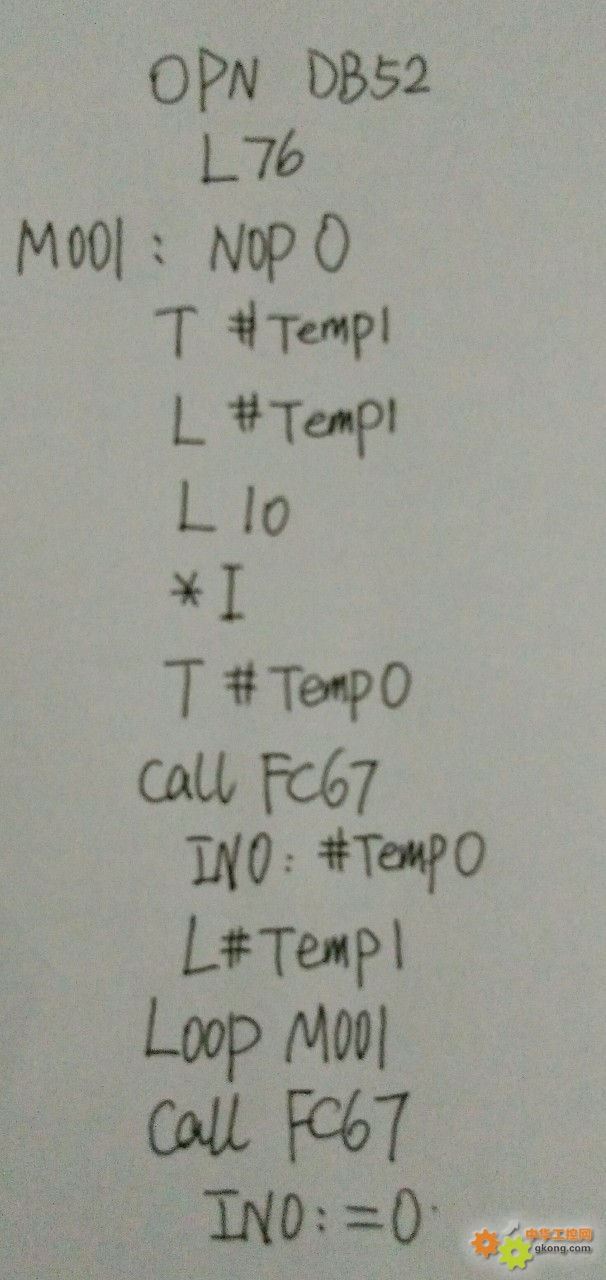 OPN DB52
L 76
M001: NOP 0
T #Temp1
L #Temp1
L 10
*I
T #Temp0
Call FC67
IN0: #Temp0
L #Temp1
Loop M001
Call FC67
IN0:=0
中华工控网
gkong.com